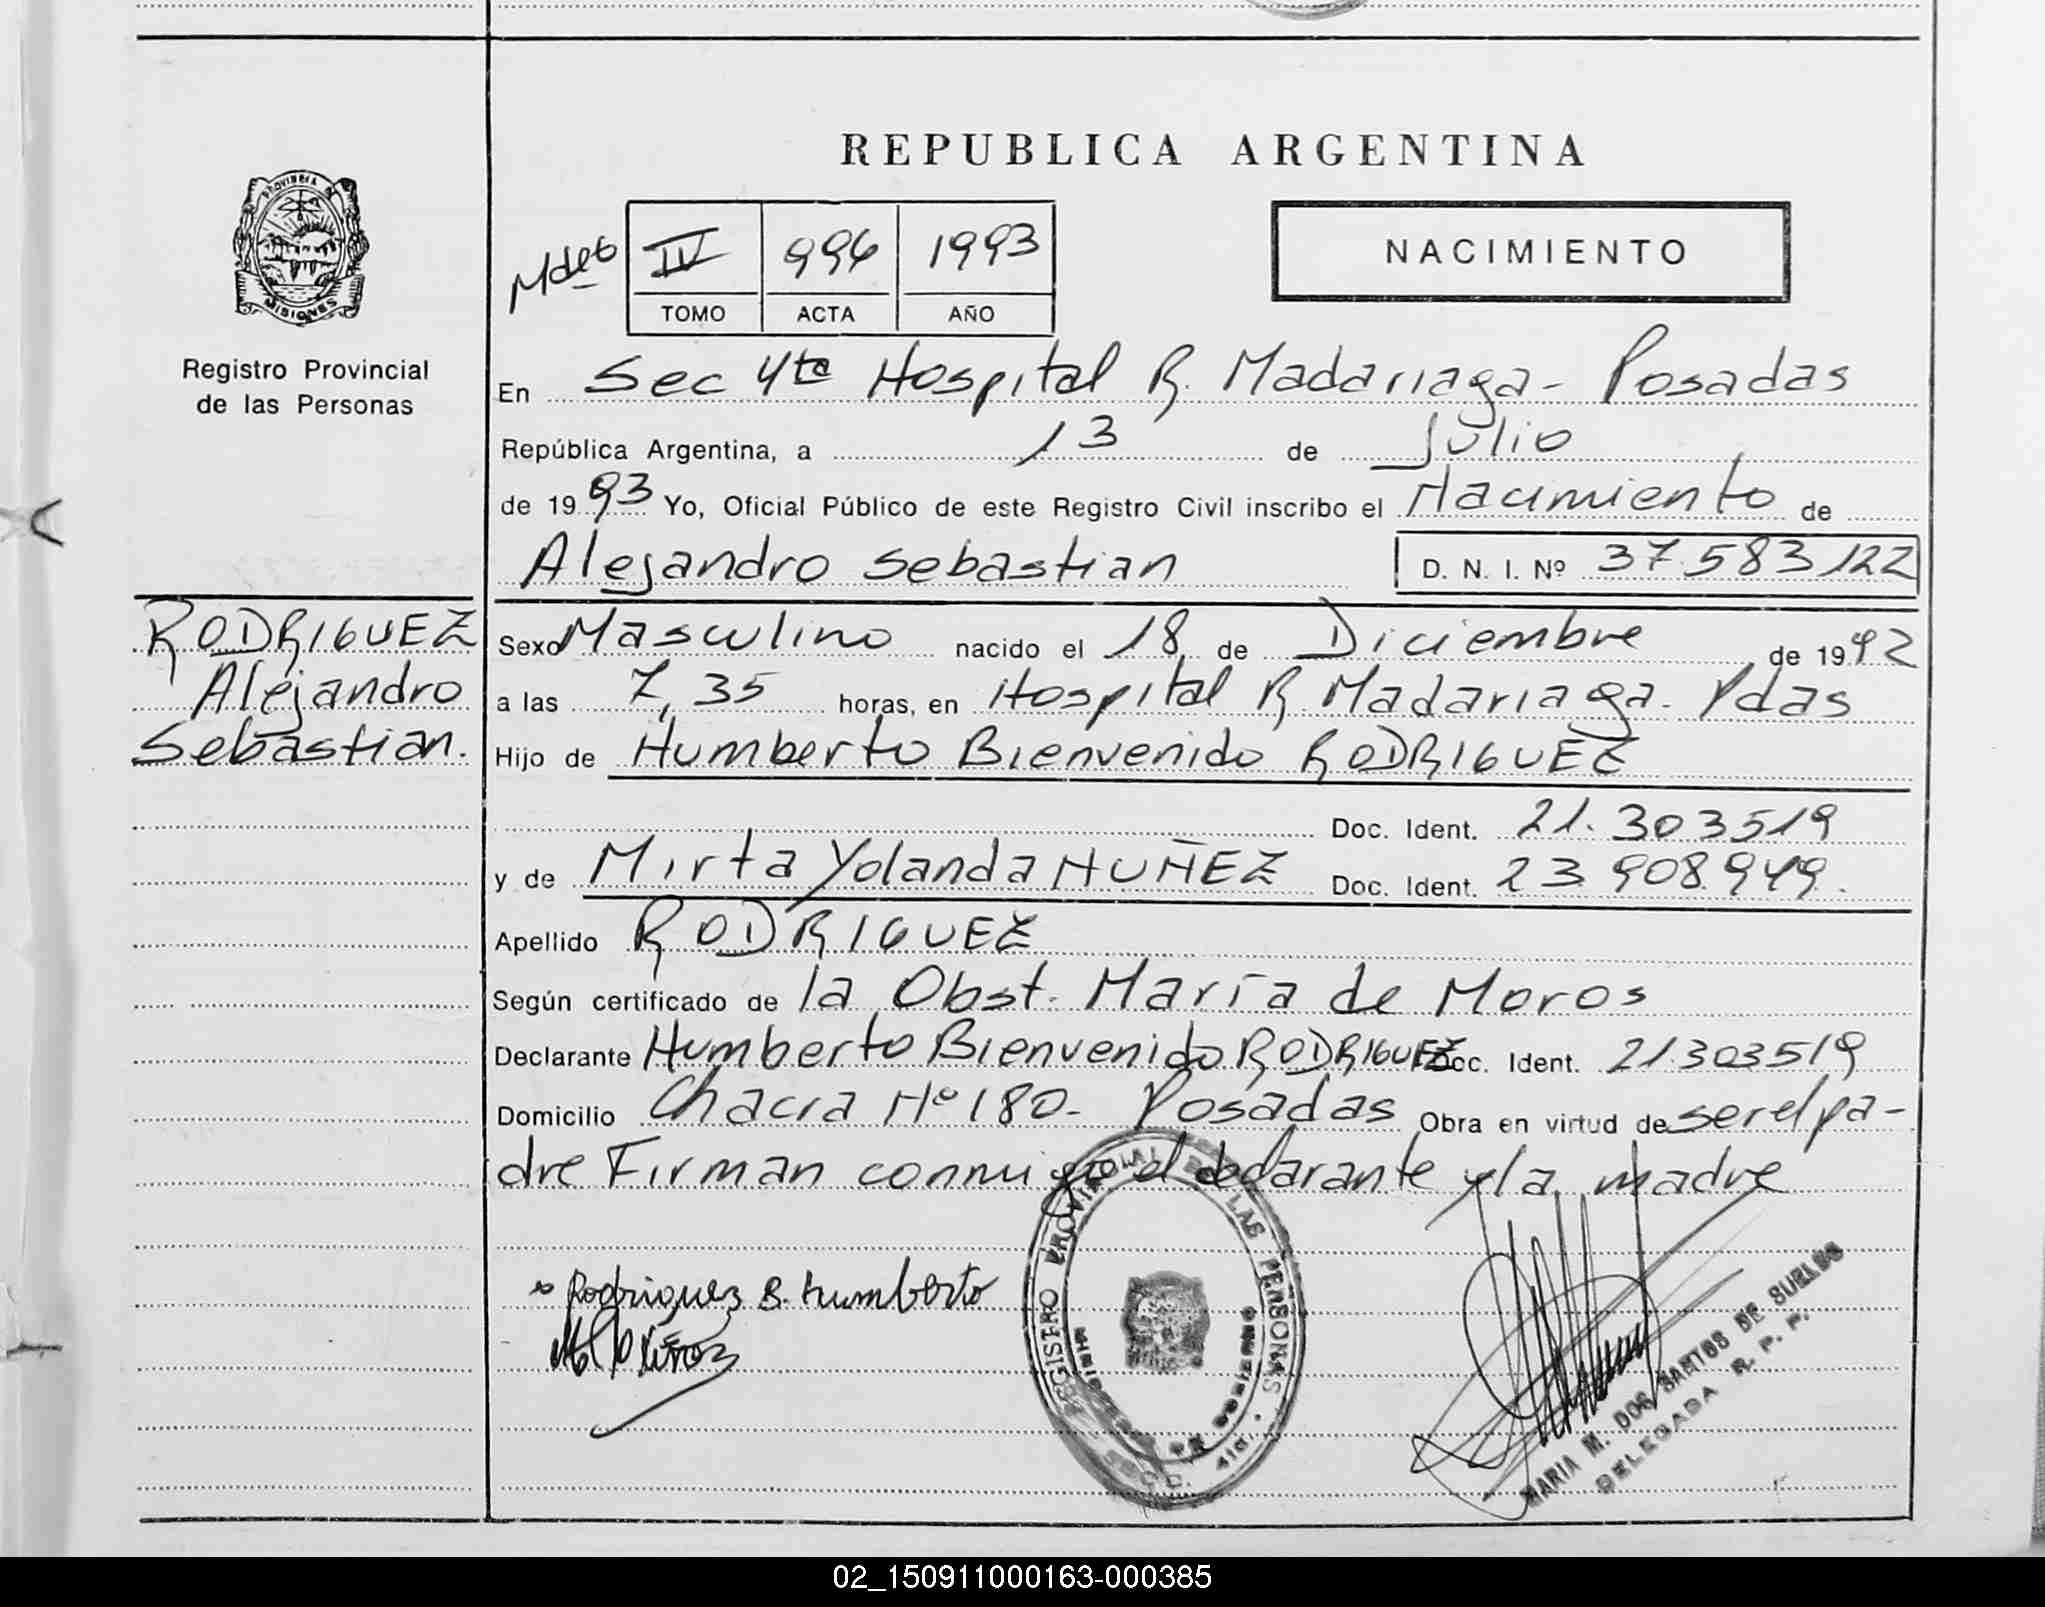 REPUBLICA ARGENTINA
PROVINCIA DE
MISIONES
Registro Provincial
de las Personas
IV 996 1993
TOMO ACTA AÑO
NACIMIENTO
En Sec 4ta Hospital R. Madariaga - Posadas
República Argentina, a 13 de Julio
de 1993 Yo, Oficial Público de este Registro Civil inscribo el Nacimiento de
Alejandro Sebastian D. N. I. Nº 37.583.122
RODRIGUEZ
Alejandro
Sebastian.
Sexo Masculino nacido el 18 de Diciembre de 1992
a las 7,35 horas, en Hospital R. Madariaga. Pdas
Hijo de Humberto Bienvenido RODRIGUEZ
Doc. Ident. 21.303519
y de Mirta Yolanda NUÑEZ Doc. Ident. 23.908.949.
Apellido RODRIGUEZ
Según certificado de la Obst. María de Moros
Declarante Humberto Bienvenido RODRIGUEZ Doc. Ident. 21.303519
Domicilio Chacra Nº 180 - Posadas Obra en virtud de ser el pa-
dre Firman conmigo el declarante y la madre
Rodriguez B. Humberto
REGISTRO PROVINCIAL DE LAS PERSONAS
MARIA M. DOS SANTOS DE SUELDO
DELEGADA R. P. P.
02_150911000163-000385